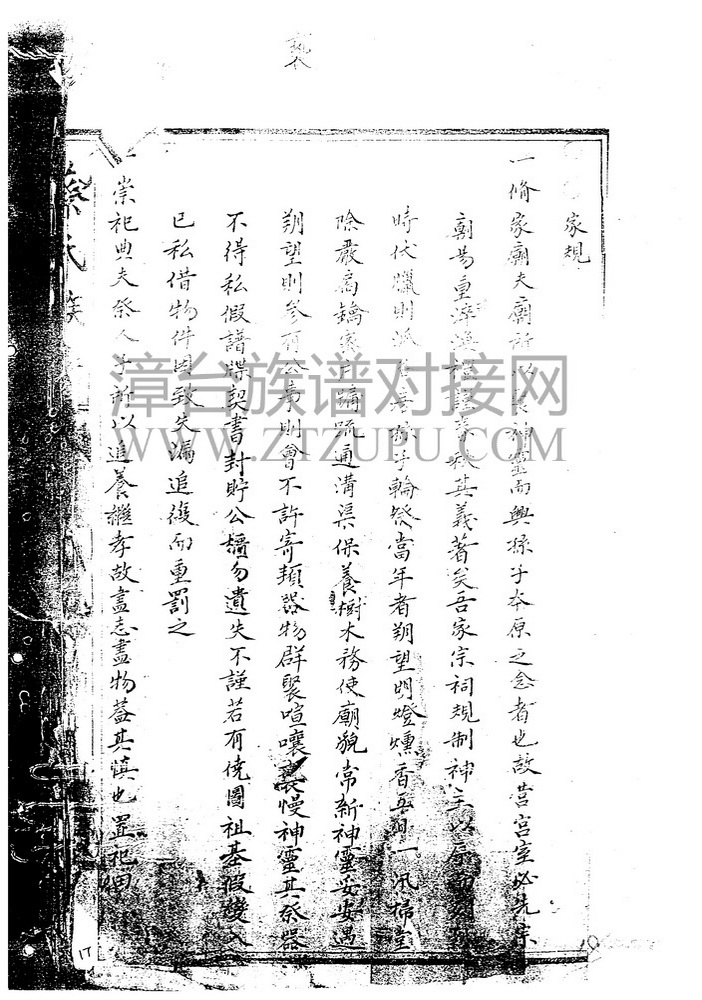 褻
家規
一脩家廟夫廟所以神靈而興孫子本原之念者也故营宮室必先宗
廟易重萃渙其義著矣吾家宗祠規制神主以序
時伏臘則派孫子輪祭當年者朔望明燈燻香五日一汛掃堂
除嚴扃鑰疏通溝渠保養樹木務使廟貌常新神靈妥安遇
朔望則參有公事則會不許寄頓器物群聚喧嚷褻慢神靈其祭器
不得私假譜牒契書封貯公櫃勿遺失不謹若有侥圖祖基假殘入
已私借物件因致失漏追復而重罰之
一崇祀典夫祭人子所以追養繼孝故盡志盡物蓋其慎也置祀田
蔡氏族
漳台族谱对接网
WWW.ZTZUPU.COM
17